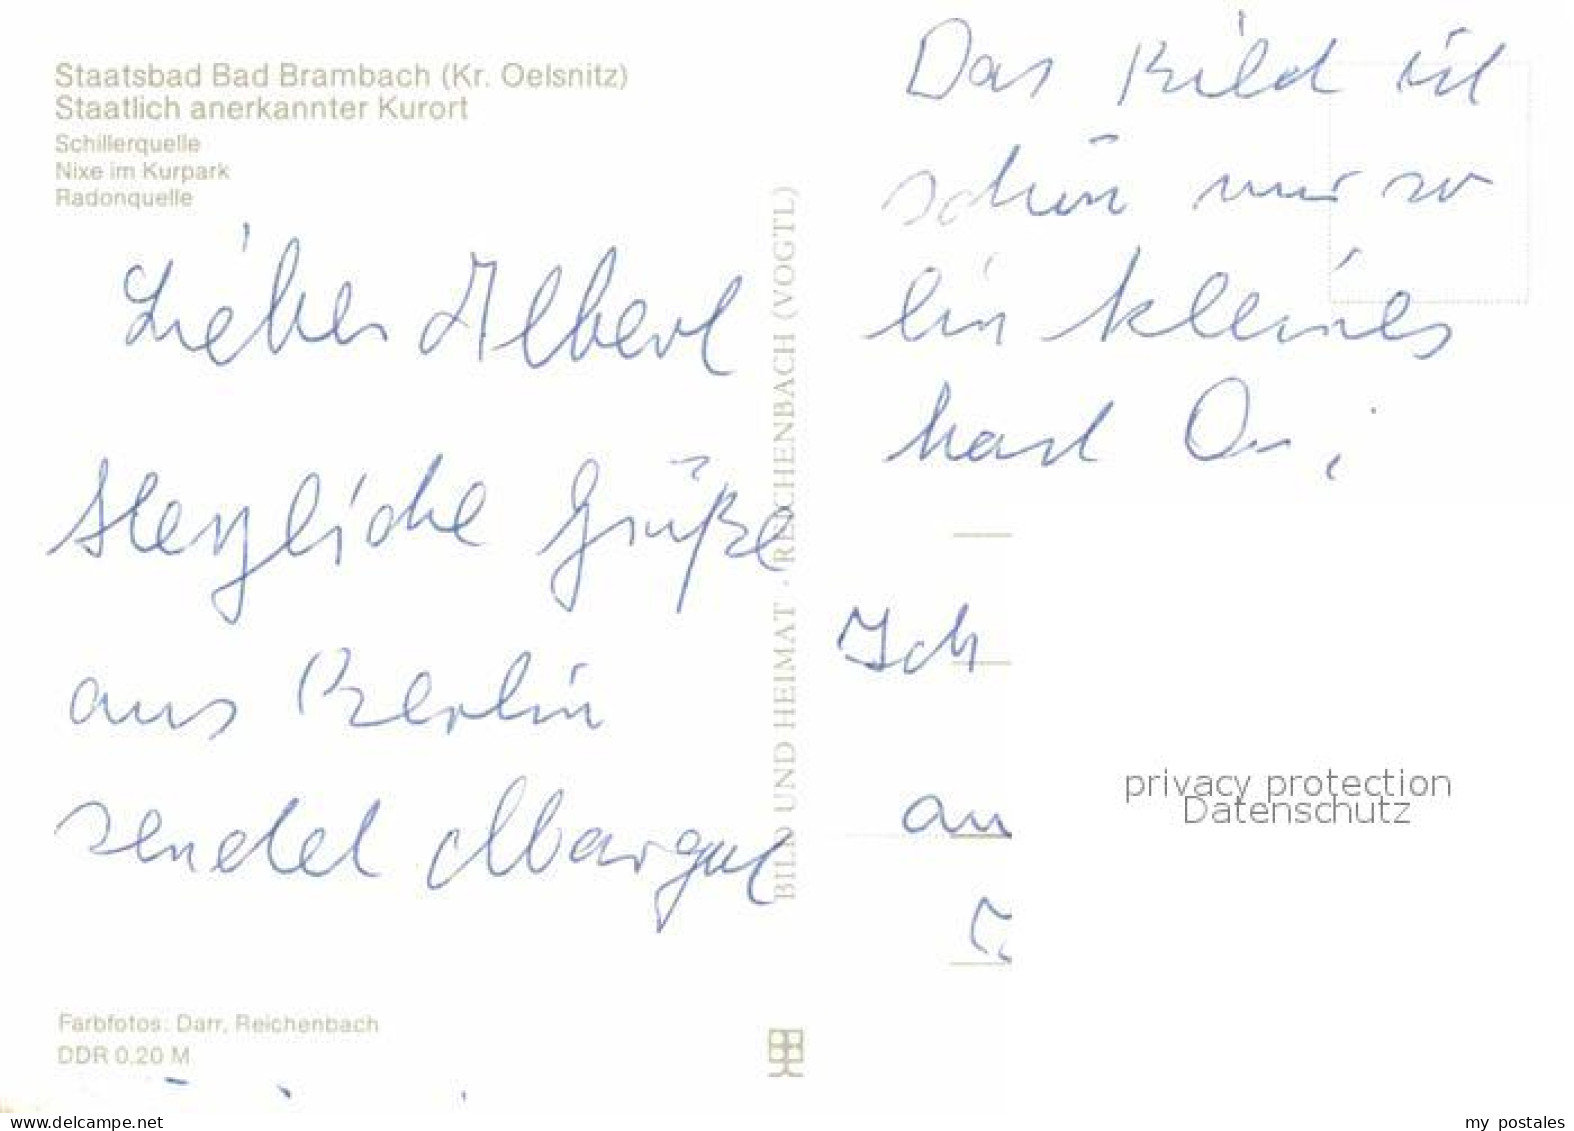 Staatsbad Bad Brambach (Kr. Oelsnitz)
Staatlich anerkannter Kurort
Schillerquelle
Nixe im Kurpark
Radonquelle
Lieber Albert
Herzliche Grüße
aus Berlin
sendet Margut
BILD UND HEIMAT · REICHENBACH (VOGTL)
Das Bild ist
schön nur so
ein kleines
hast
Ich
an
privacy protection
Datenschutz
Farbfotos: Darr, Reichenbach
DDR 0,20 M
www.delcampe.net
my_postales